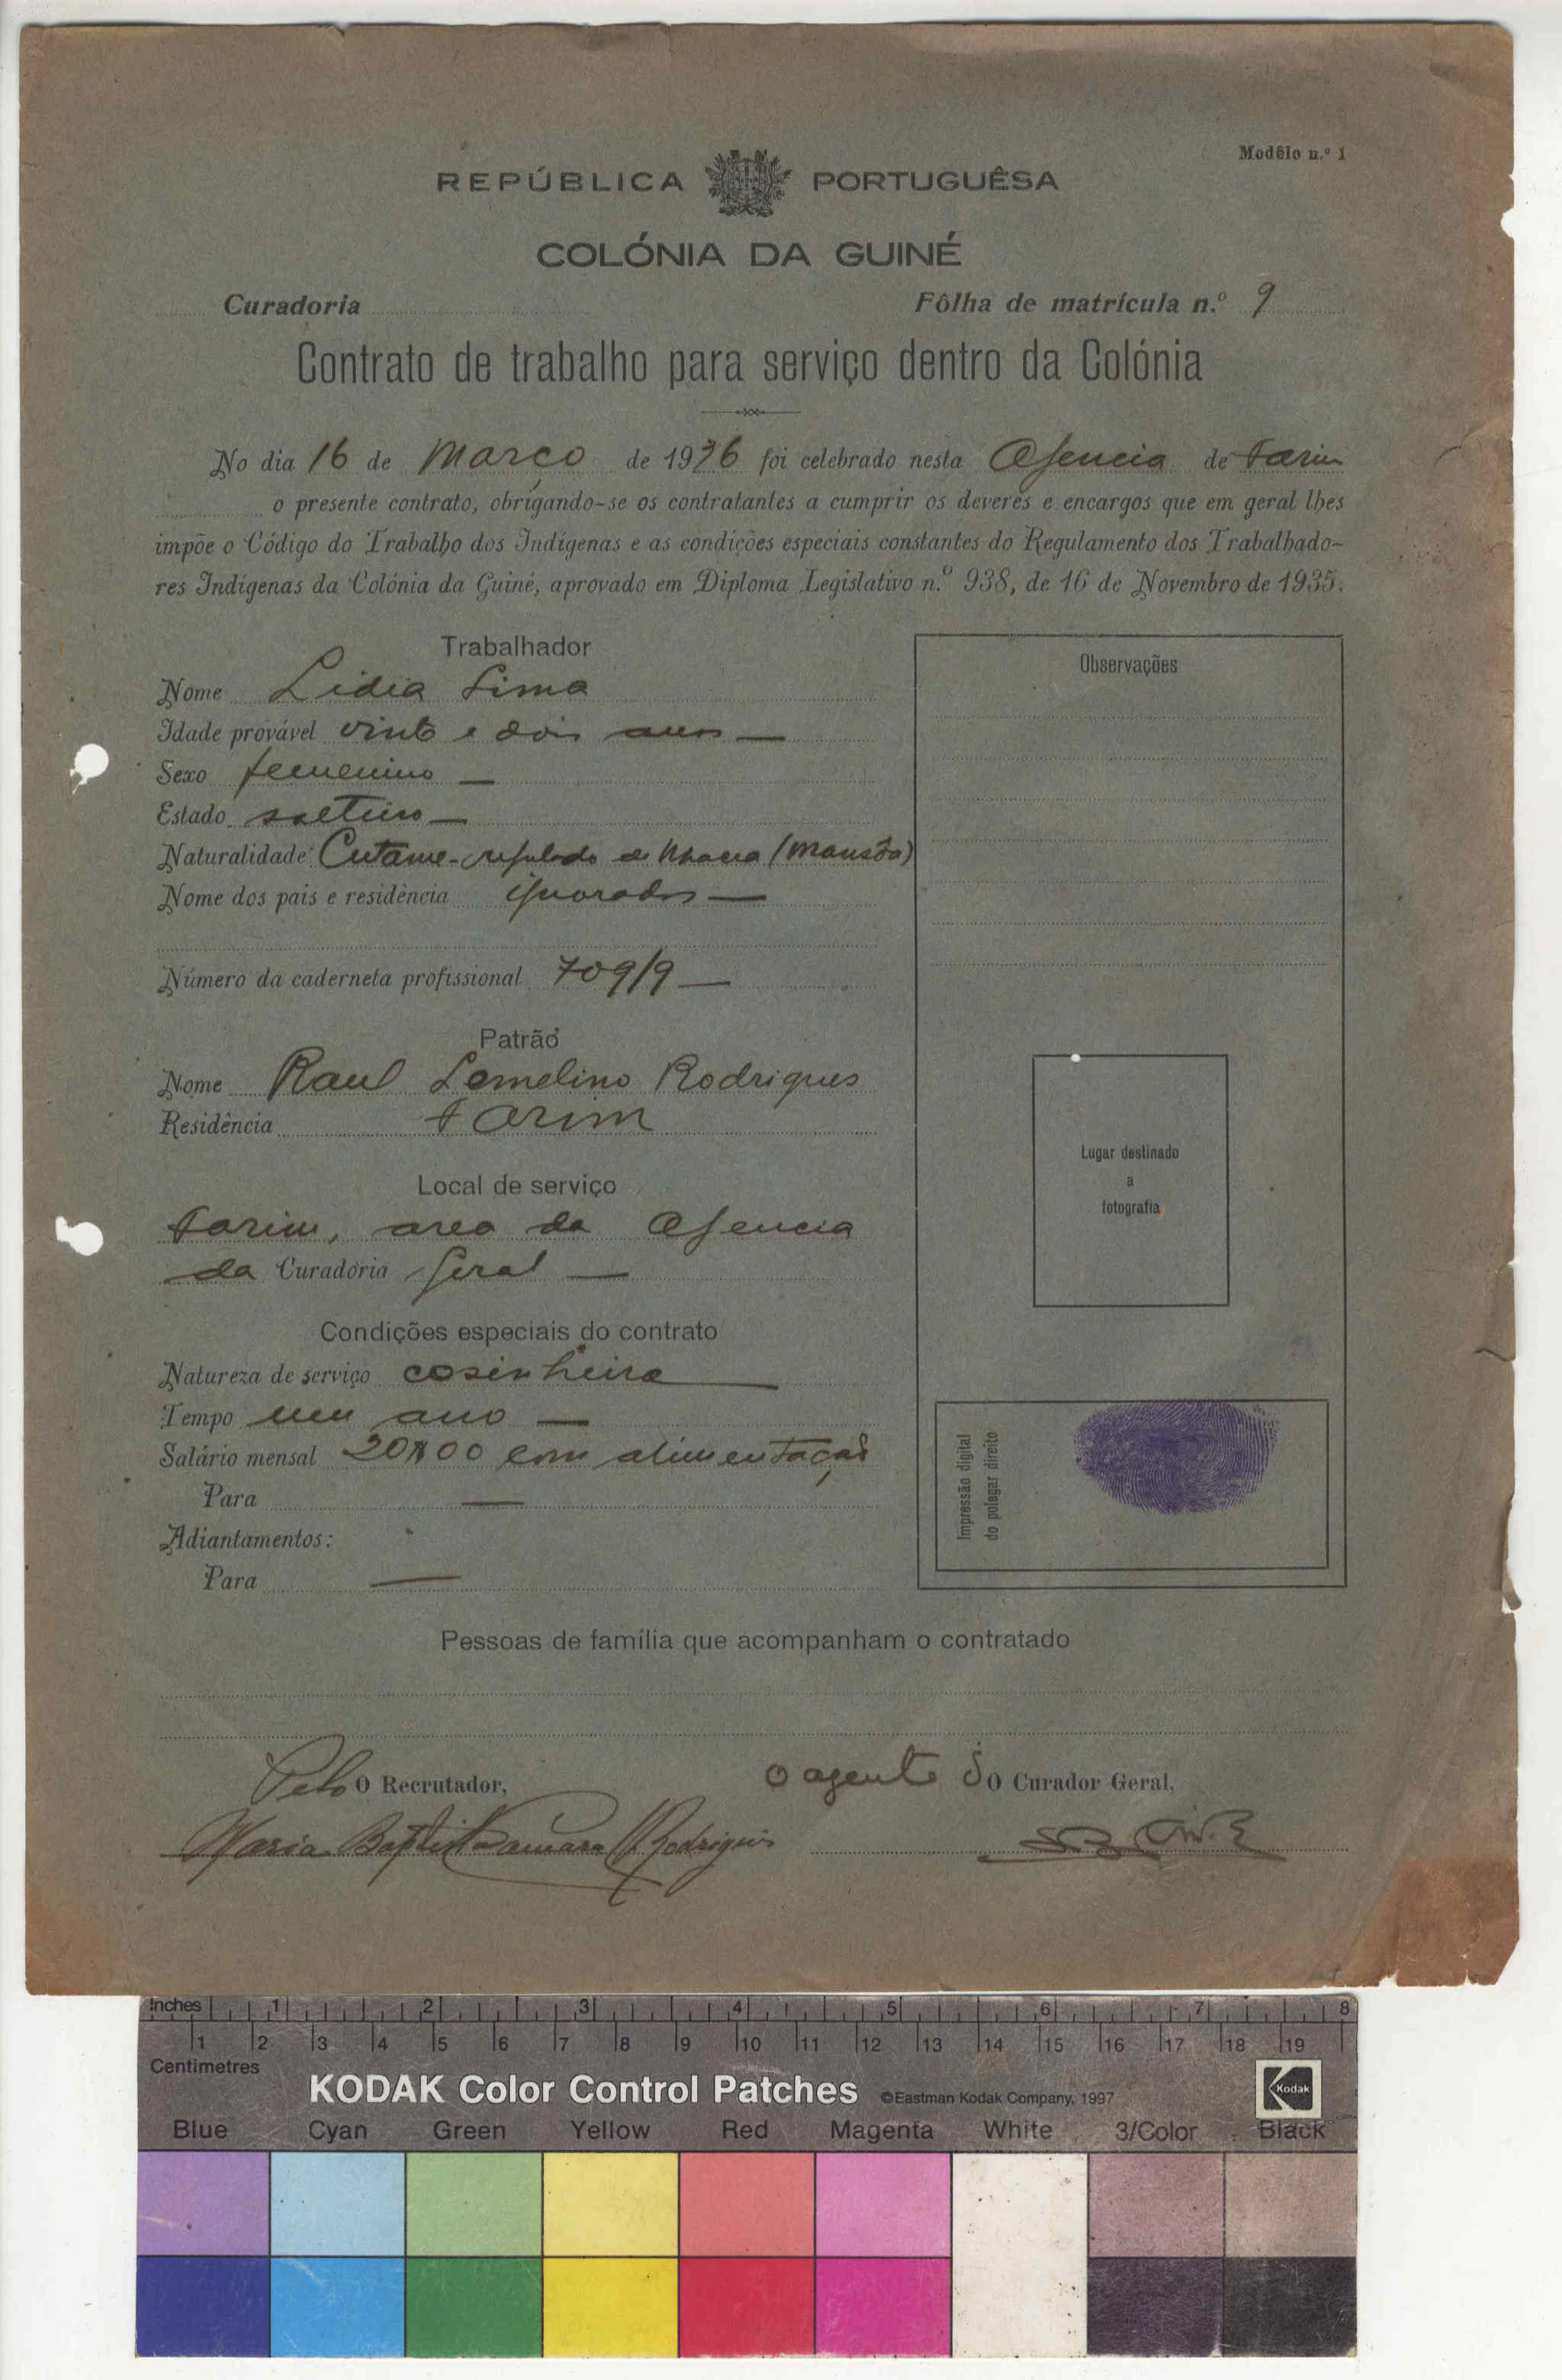 Modêlo n.º 1
REPÚBLICA PORTUGUÊSA
COLÓNIA DA GUINÉ
Curadoria Fôlha de matrícula n.º 9
Contrato de trabalho para serviço dentro da Colónia
No dia 16 de Março de 1936 foi celebrado nesta Agencia de Farim
o presente contrato, obrigando-se os contratantes a cumprir os deveres e encargos que em geral lhes
impõe o Código do Trabalho dos Indígenas e as condições especiais constantes do Regulamento dos Trabalhado-
res Indígenas da Colónia da Guiné, aprovado em Diploma Legislativo n.º 938, de 16 de Novembro de 1935.
Trabalhador
Nome Lidia Lima
Idade provável vinte e dois anos —
Sexo femenino —
Estado solteiro —
Naturalidade: Cutame - regulado de (Mansôa)
Nome dos pais e residência ignorados —
Número da caderneta profissional 709/9 —
Patrão
Nome Raul Rodrigues
Residência Farim
Local de serviço
Farim, area da Agencia
da Curadoria Geral —
Condições especiais do contrato
Natureza de serviço cosinheira —
Tempo um ano —
Salário mensal 20$00 com alimentação
Para —
Adiantamentos:
Para —
Observações
Lugar destinado
a
fotografia
Impressão digital
do polegar direito
Pessoas de família que acompanham o contratado
Pelo O Recrutador,
Maria Baptista Camara Rodrigues
O agente do O Curador Geral,
Inches 1 2 3 4 5 6 7 8
1 2 3 4 5 6 7 8 9 10 11 12 13 14 15 16 17 18 19
Centimetres
KODAK Color Control Patches ©Eastman Kodak Company, 1997 Kodak
Blue Cyan Green Yellow Red Magenta White 3/Color Black